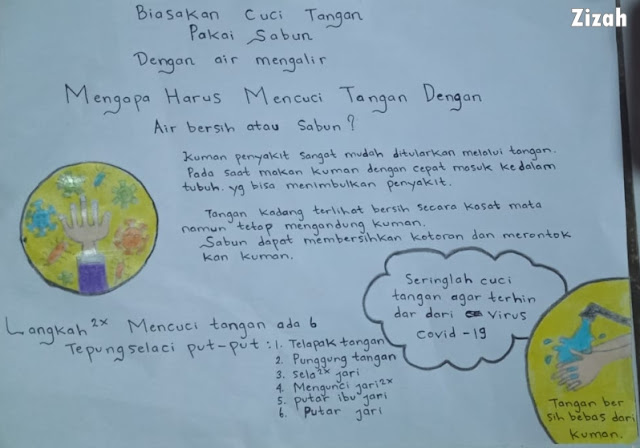 Zizah
Biasakan Cuci Tangan
Pakai Sabun
Dengan air mengalir
Mengapa Harus Mencuci Tangan Dengan
Air bersih atau Sabun?
Kuman penyakit sangat mudah ditularkan melalui tangan.
Pada saat makan kuman dengan cepat masuk kedalam
tubuh. yg bisa menimbulkan penyakit.
Tangan kadang terlihat bersih secara kasat mata
namun tetap mengandung kuman.
Sabun dapat membersihkan kotoran dan merontok
kan kuman.
Seringlah cuci
tangan agar terhin
dar dari virus
Covid-19
Langkah2x Mencuci tangan ada 6
Tepungselaci put-put : 1. Telapak tangan
2. Punggung tangan
3. Sela2x jari
4. Mengunci jari2x
5. putar ibu jari
6. Putar jari
Tangan ber
sih bebas dari
kuman.